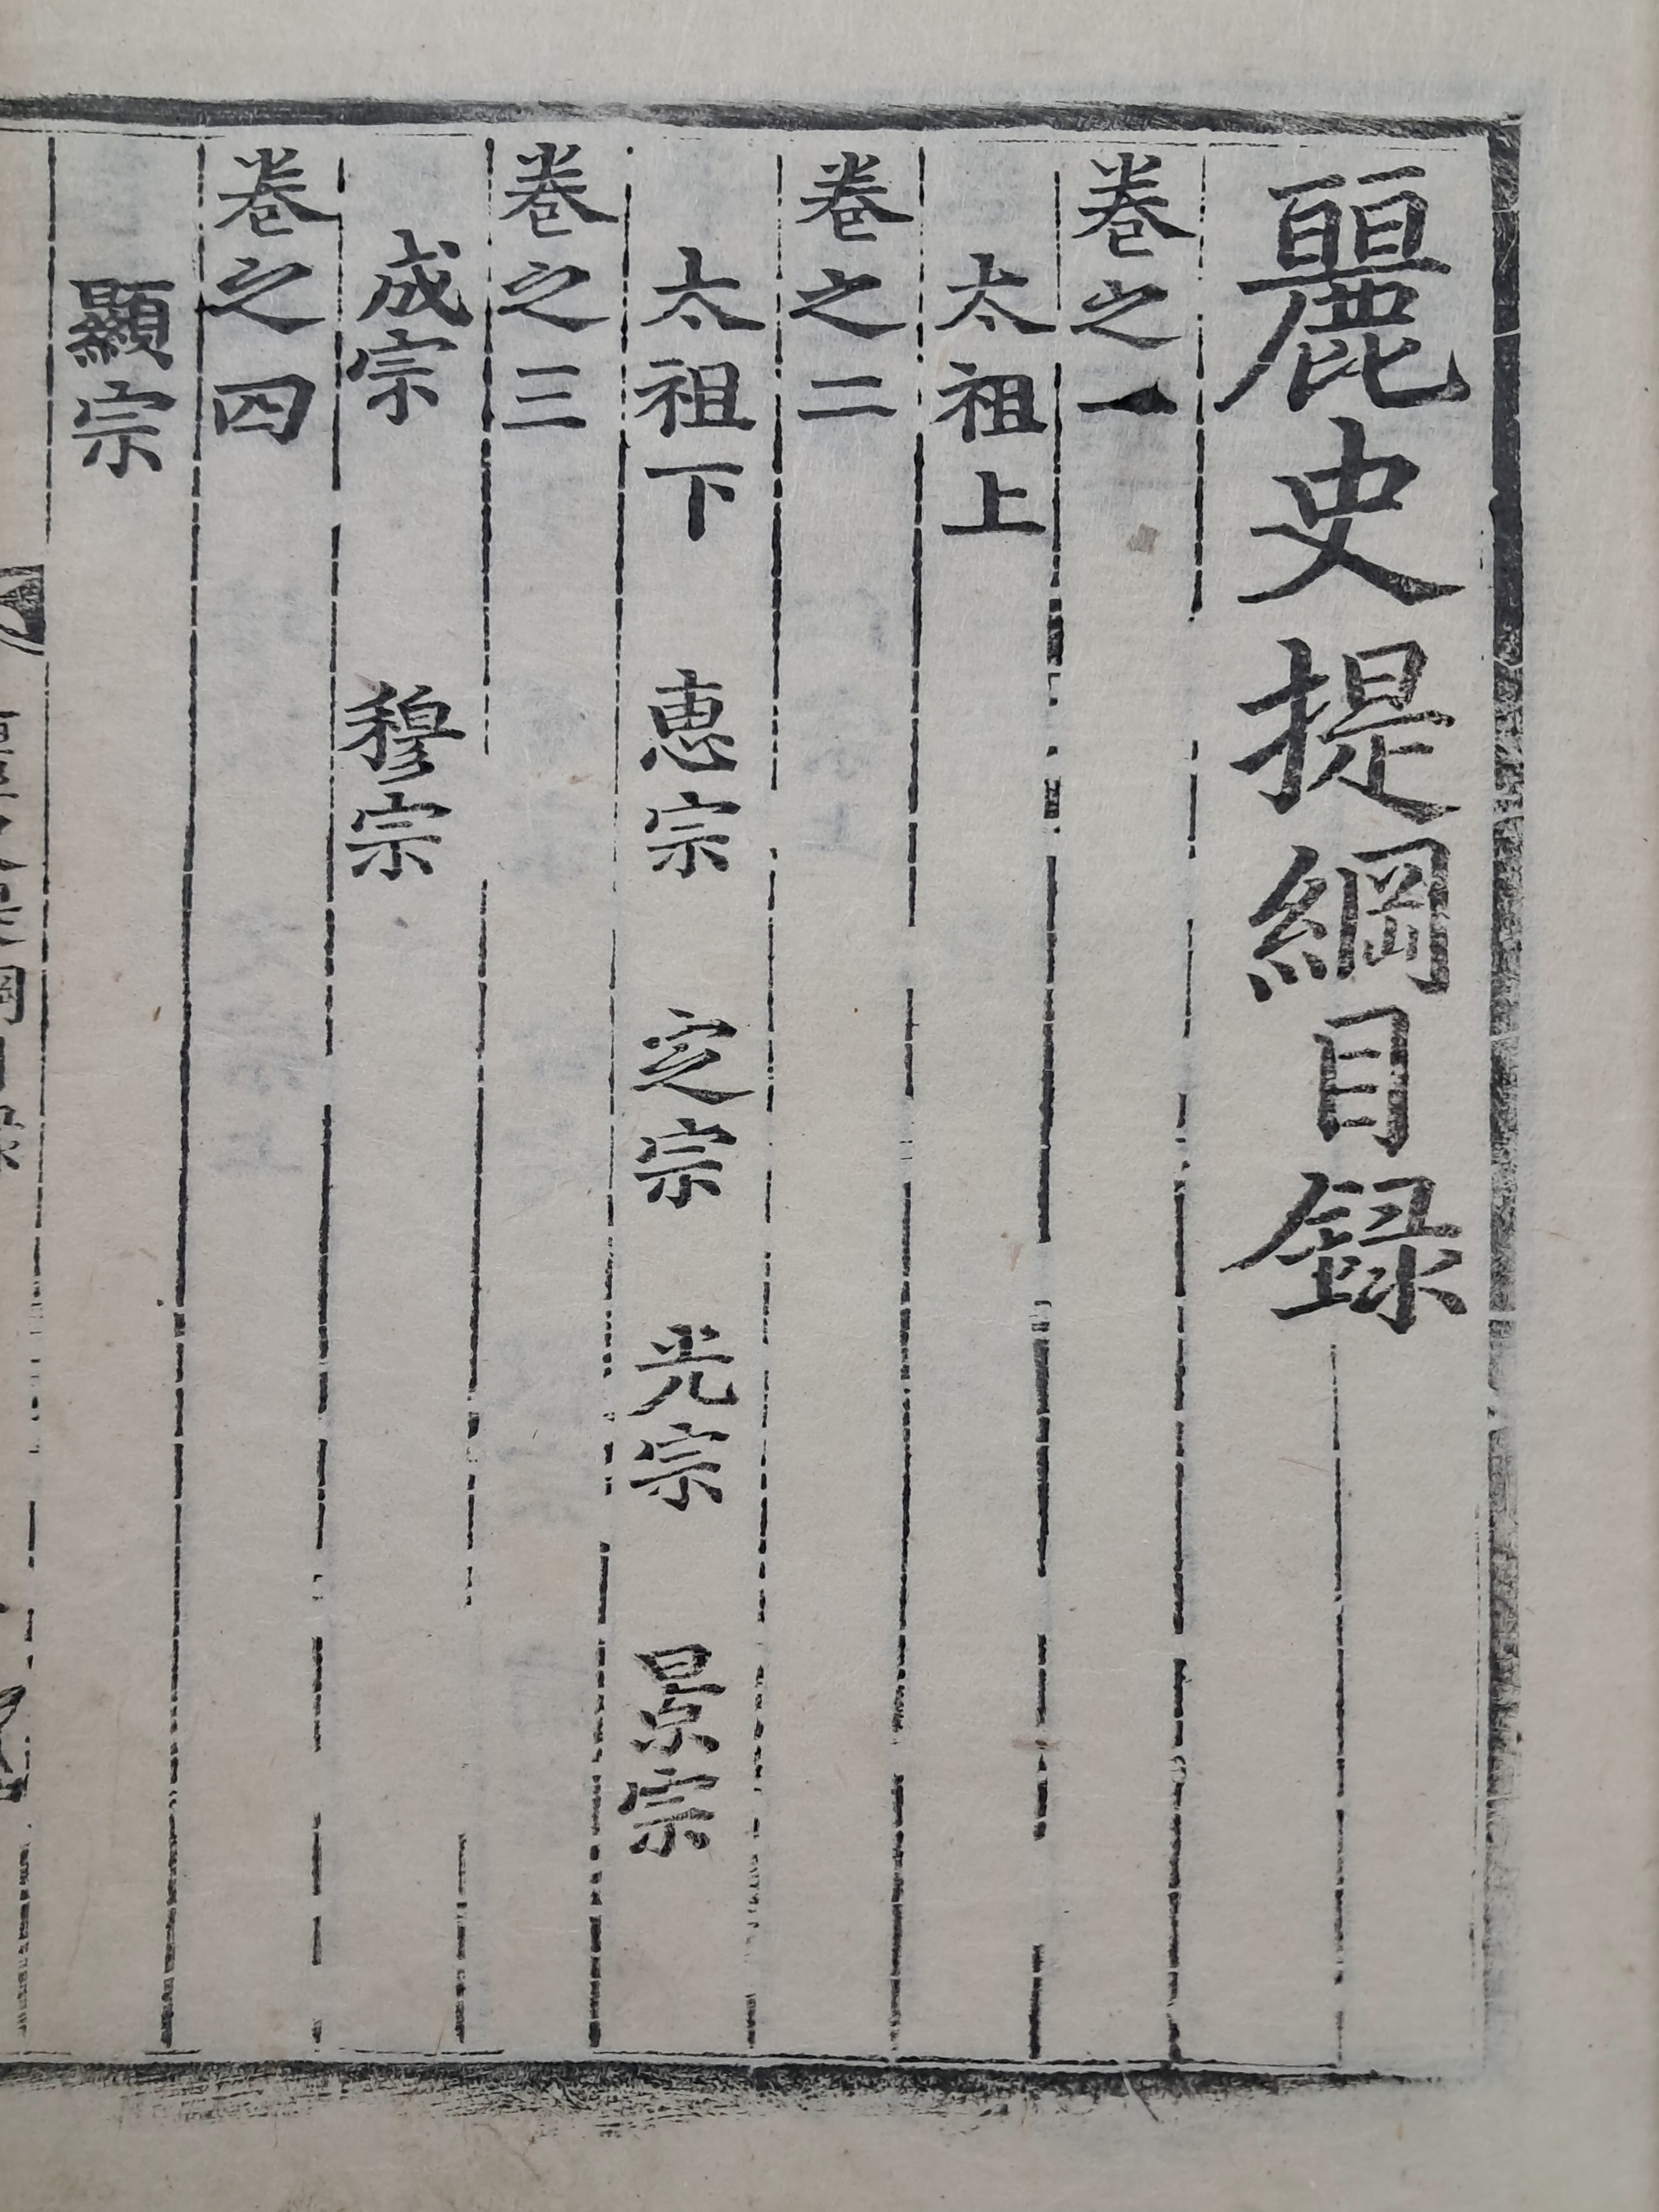 麗史提綱目録
卷之一
太祖上
卷之二
太祖下 惠宗 㝎宗 光宗 景宗
卷之三
成宗 穆宗
卷之四
顯宗